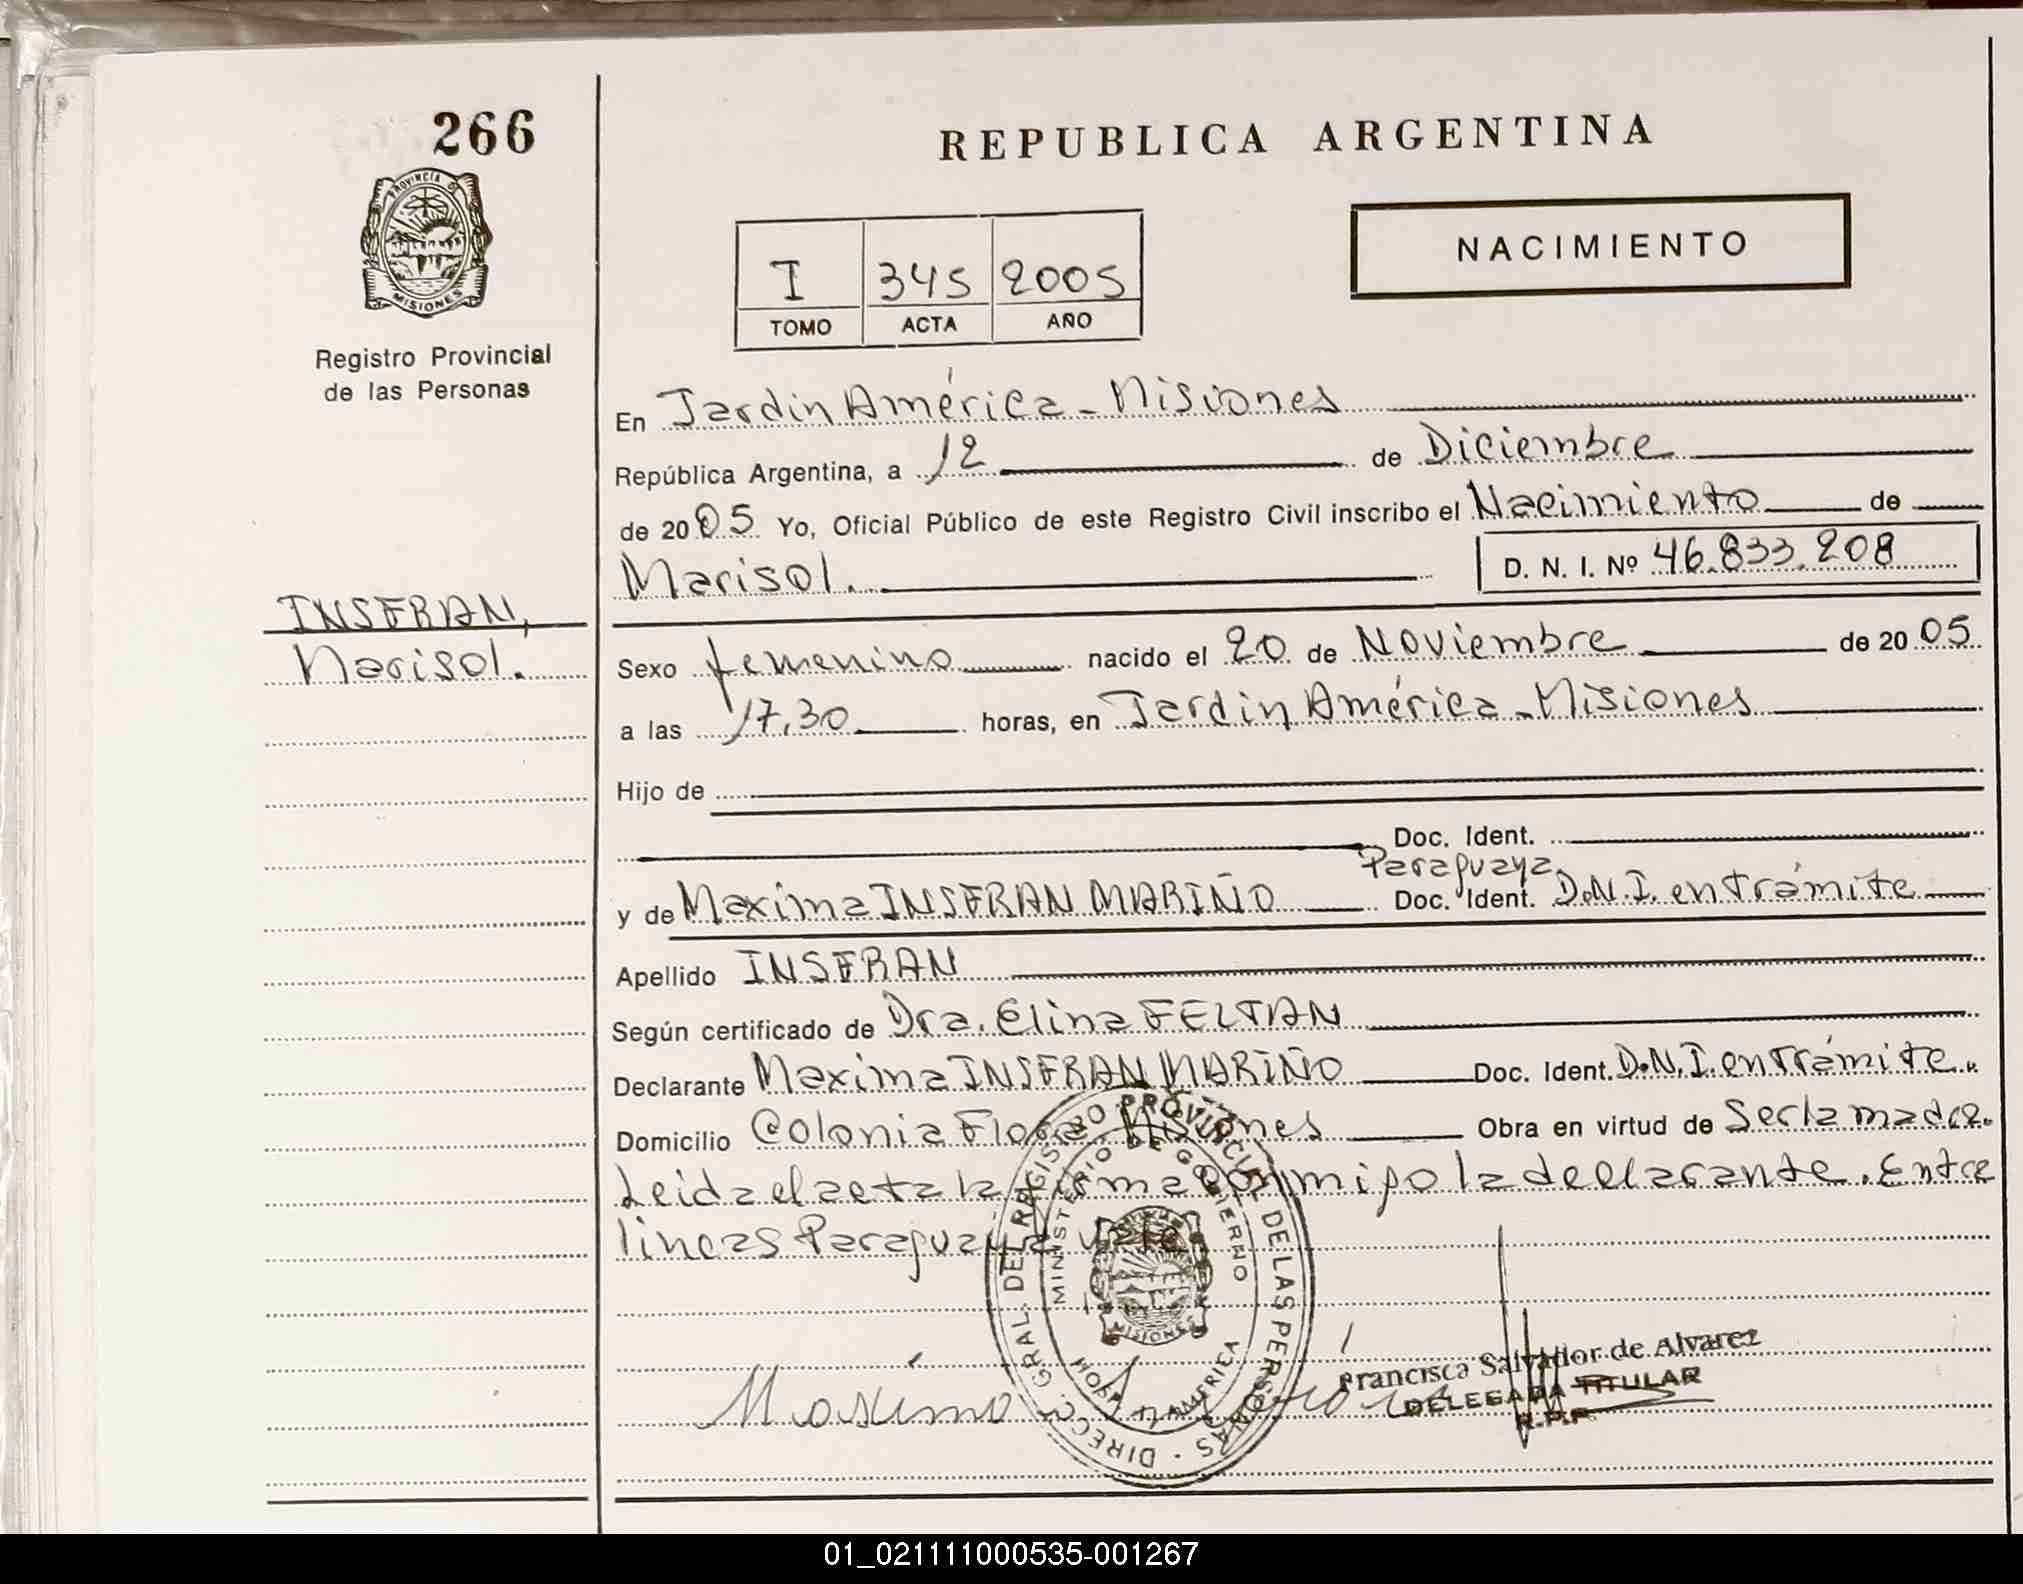 266
REPUBLICA ARGENTINA
PROVINCIA DE
MISIONES
Registro Provincial
de las Personas
NACIMIENTO
I 345 2005
TOMO ACTA AÑO
En Jardin América - Misiones
República Argentina, a 12 de Diciembre
de 2005 Yo, Oficial Público de este Registro Civil inscribo el Nacimiento de
Marisol. D. N. I. Nº 46.833.208
INSFRAN,
Marisol.
Sexo femenino nacido el 20 de Noviembre de 2005
a las 17,30 horas, en Jardin América - Misiones
Hijo de
Doc. Ident.
Paraguaya
y de Maxima INSFRAN MARIÑO Doc. Ident. D.N.I. en trámite
Apellido INSFRAN
Según certificado de Dra. Elina FELTAN
Declarante Maxima INSFRAN MARIÑO Doc. Ident. D.N.I. en trámite.
Domicilio Colonia Flora. Misiones Obra en virtud de Ser la madre.
Leida el acta la firma conmigo la declarante. Entre
lineas Paraguaya vale
DIRECC. GRAL. DEL REGISTRO PROVINCIAL DE LAS PERSONAS
MINISTERIO DE GOBIERNO
MISIONES
AMERICA
Francisca Salvador de Alvarez
DELEGADA TITULAR
R.P.P.
01_021111000535-001267